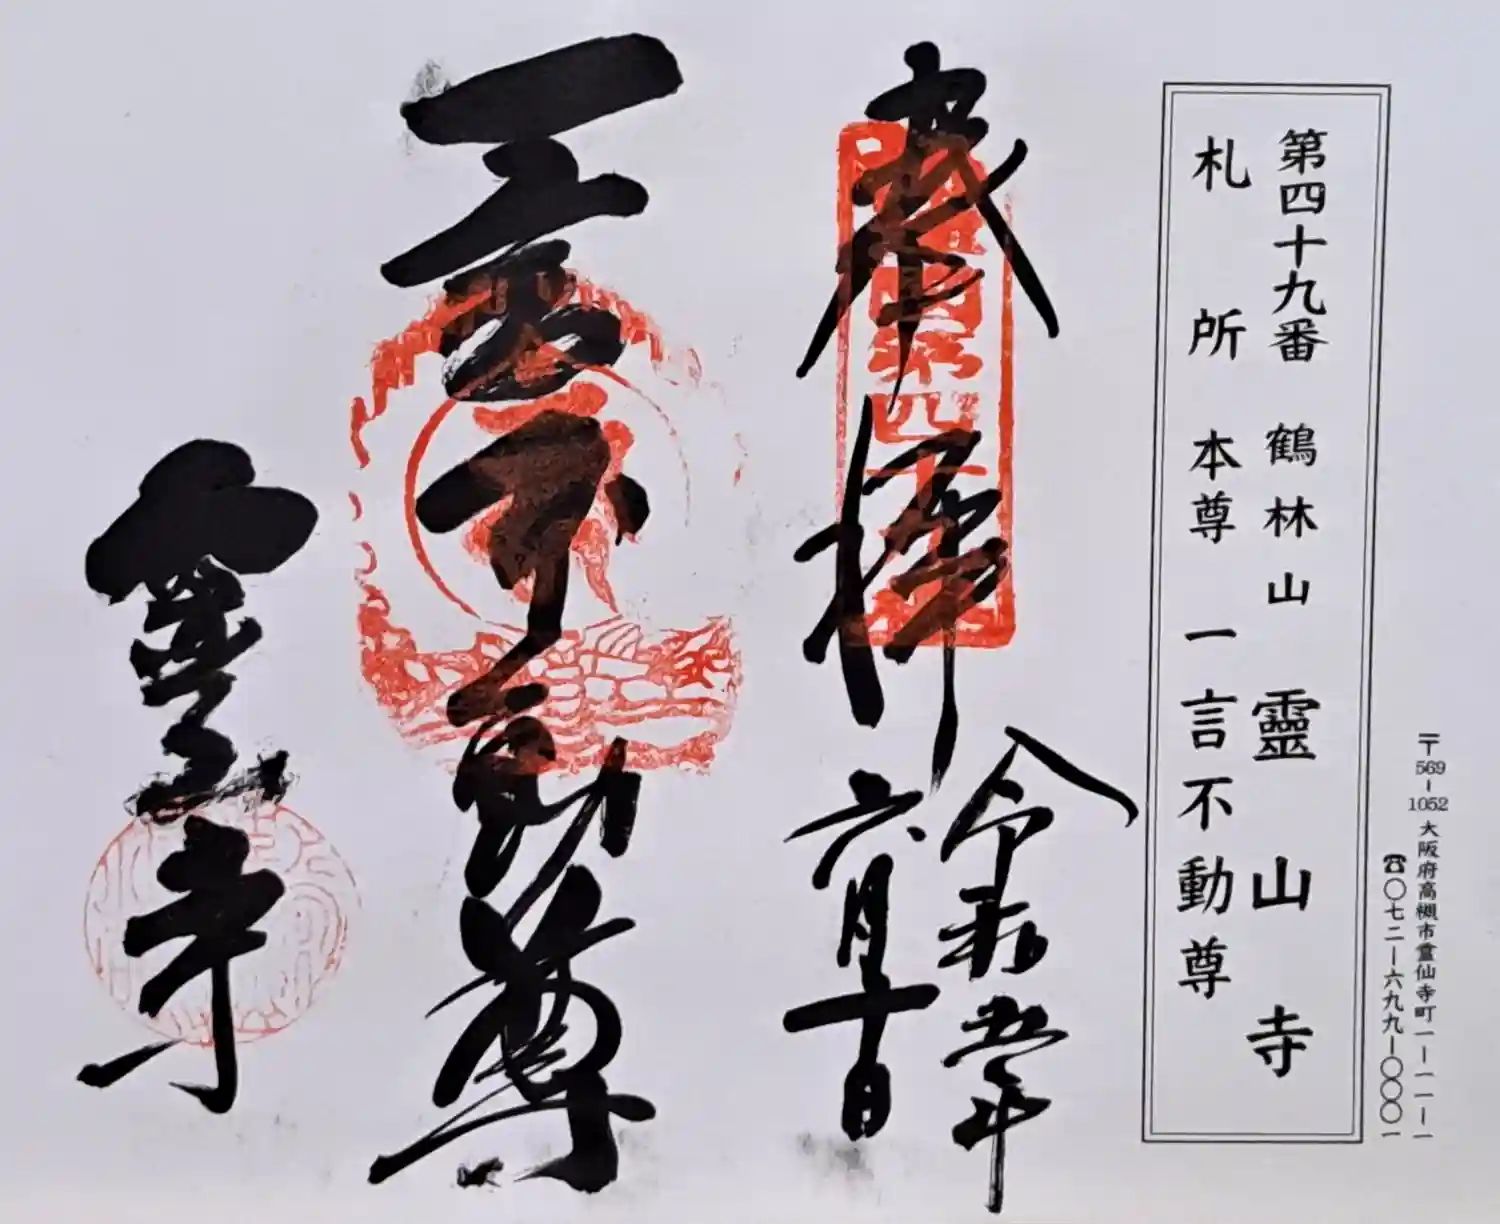 〒569-1052 大阪府高槻市霊仙寺町一ー一一ー一
☎〇七二ー六九九ー〇〇〇一
第四十九番 鶴林山 靈山寺
札所 本尊 一言不動尊
奉拝
令和六年
六月十日
一言不動尊
靈山寺